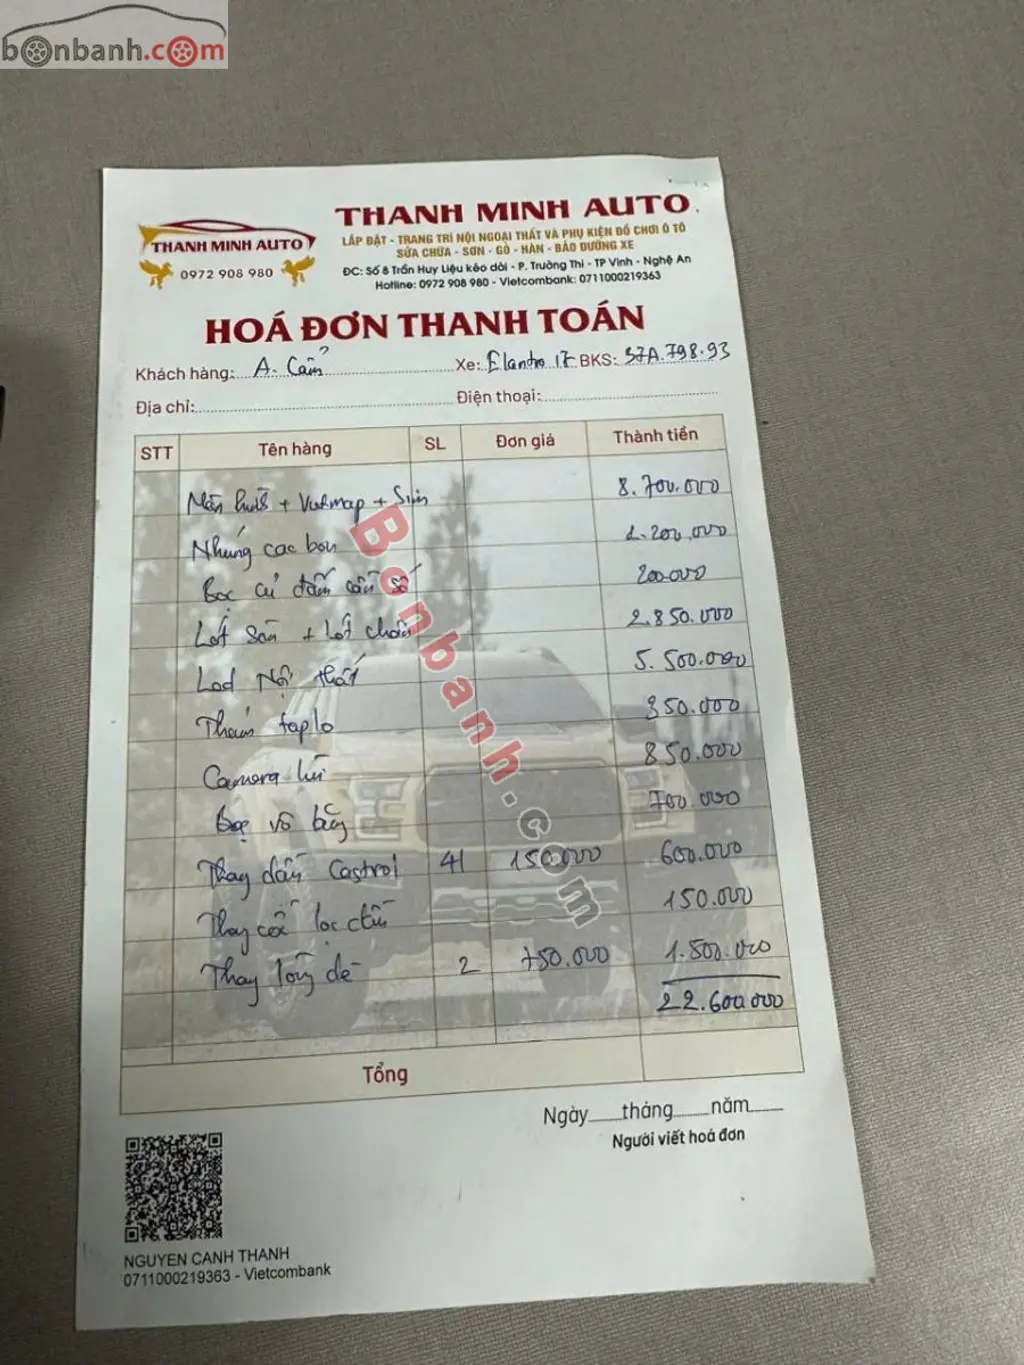 bonbanh.com
THANH MINH AUTO
0972 908 980
THANH MINH AUTO
LẮP ĐẶT - TRANG TRÍ NỘI NGOẠI THẤT VÀ PHỤ KIỆN ĐỒ CHƠI Ô TÔ
SỬA CHỮA - SƠN - GÒ - HÀN - BẢO DƯỠNG XE
ĐC: Số 8 Trần Huy Liệu kéo dài - P. Trường Thi - TP Vinh - Nghệ An
Hotline: 0972 908 980 - Vietcombank: 0711000219363
HOÁ ĐƠN THANH TOÁN
Khách hàng: A. Cẩn Xe: Elantra 17 BKS: 37A.798.93
Địa chỉ: Điện thoại:
STT Tên hàng SL Đơn giá Thành tiền
Màn hình + Vietmap + Sim 8.700.000
Nhúng cac bon 1.200.000
Bọc củ đấm cần số 200.000
Lót sàn + Lót chân 2.850.000
Led Nội thất 5.500.000
Thảm taplo 350.000
Camera lùi 850.000
Bọc vô lăng 700.000
Thay dầu Castrol 4l 150.000 600.000
Thay cốc lọc dầu 150.000
Thay lông dè 2 750.000 1.500.000
22.600.000
Tổng
Ngày tháng năm
Người viết hoá đơn
NGUYEN CANH THANH
0711000219363 - Vietcombank
Bonbanh.com